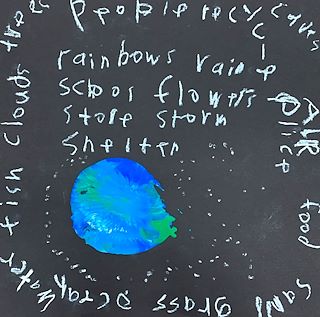 trees people recycle caves
rainbows rain
flowers
store storm
shelter
AIR
food
sand
grass
ocean
water
fish
clouds